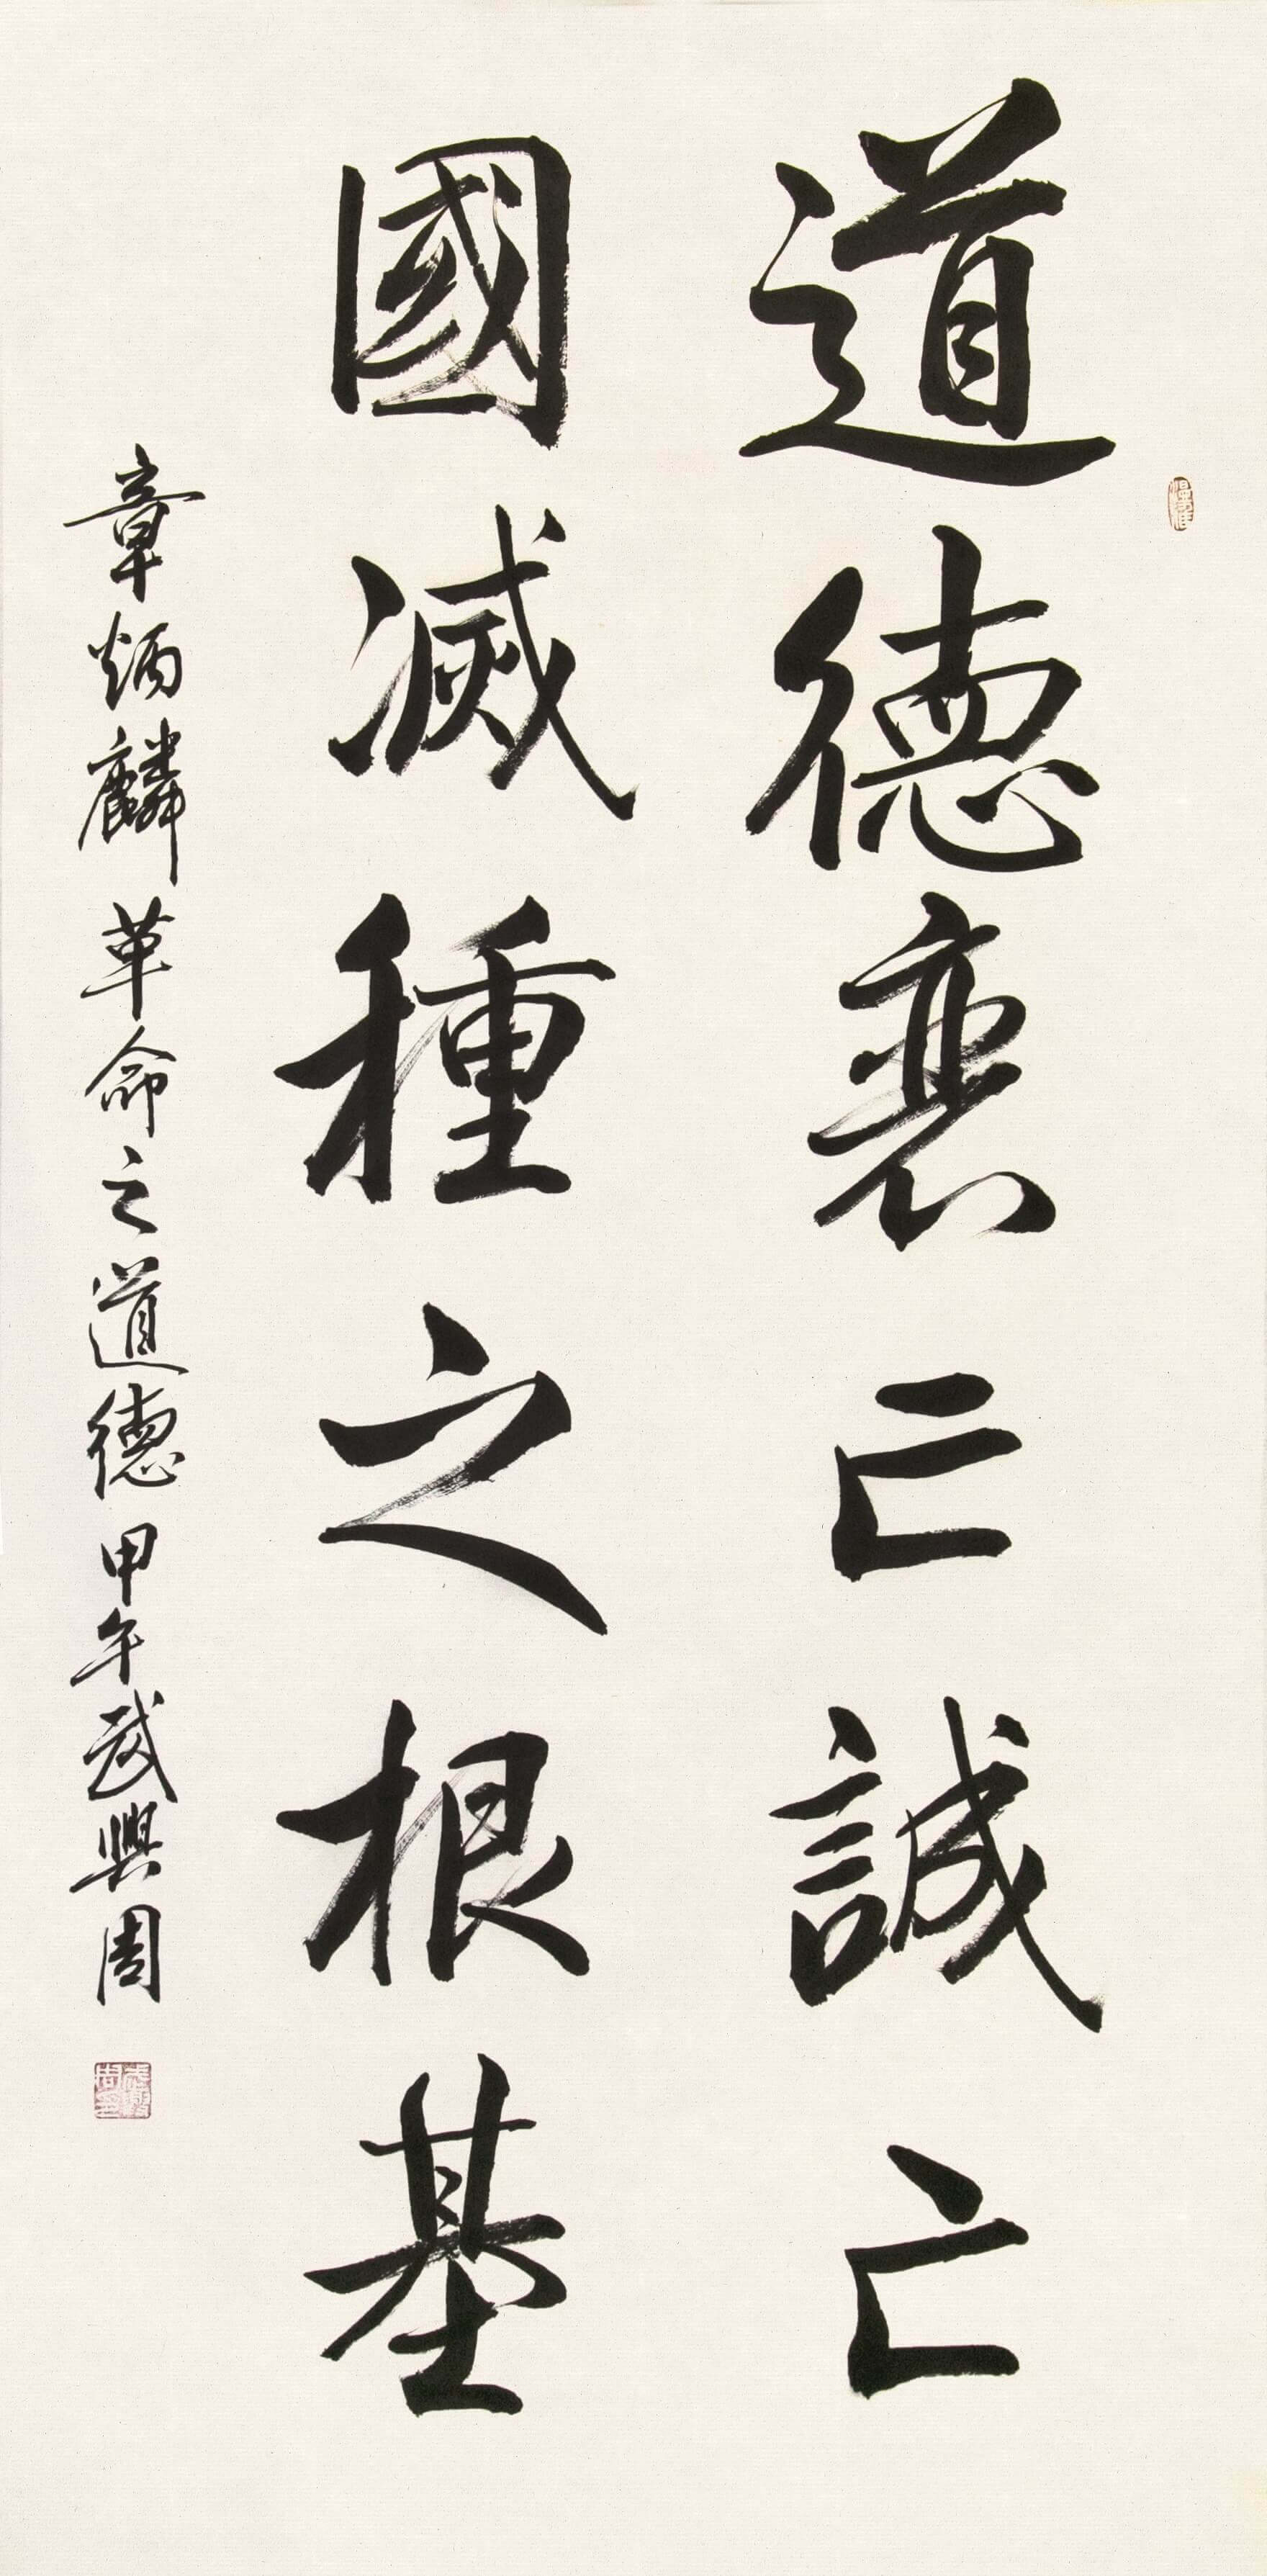 道德衰亡誠亡
國滅種之根基
章炳麟革命之道德 甲午武興周